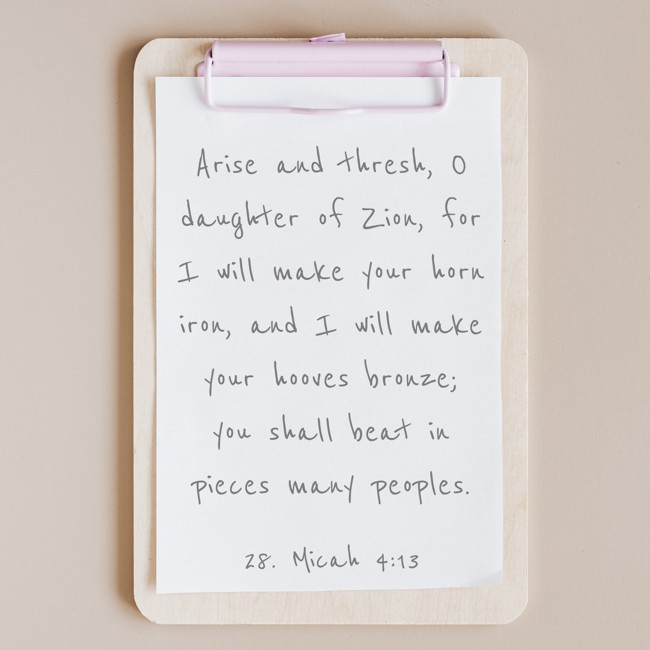 Arise and thresh, O
daughter of Zion, for
I will make your horn
iron, and I will make
your hooves bronze;
you shall beat in
pieces many peoples.
28. Micah 4:13